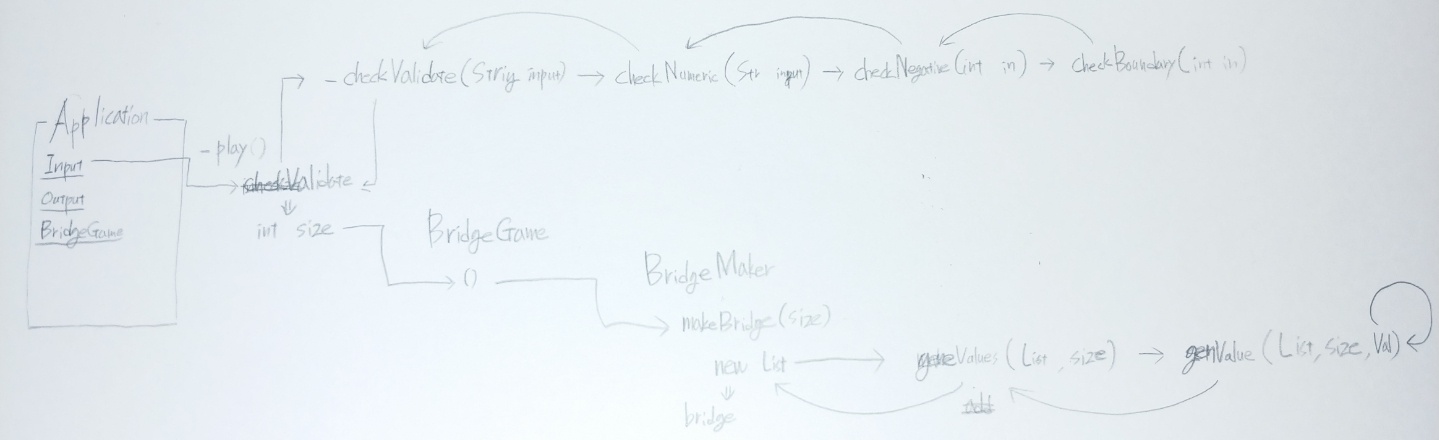 - checkValidate(String input) → checkNumeric(Str input) → checkNegative(int in) → checkBoundary(int in)
Application
- play()
Input
checkValidate
Output
int size
BridgeGame
BridgeGame
()
BridgeMaker
makeBridge(size)
new List → geneValues(List, size) → genValue(List, size, Val)
add
bridge